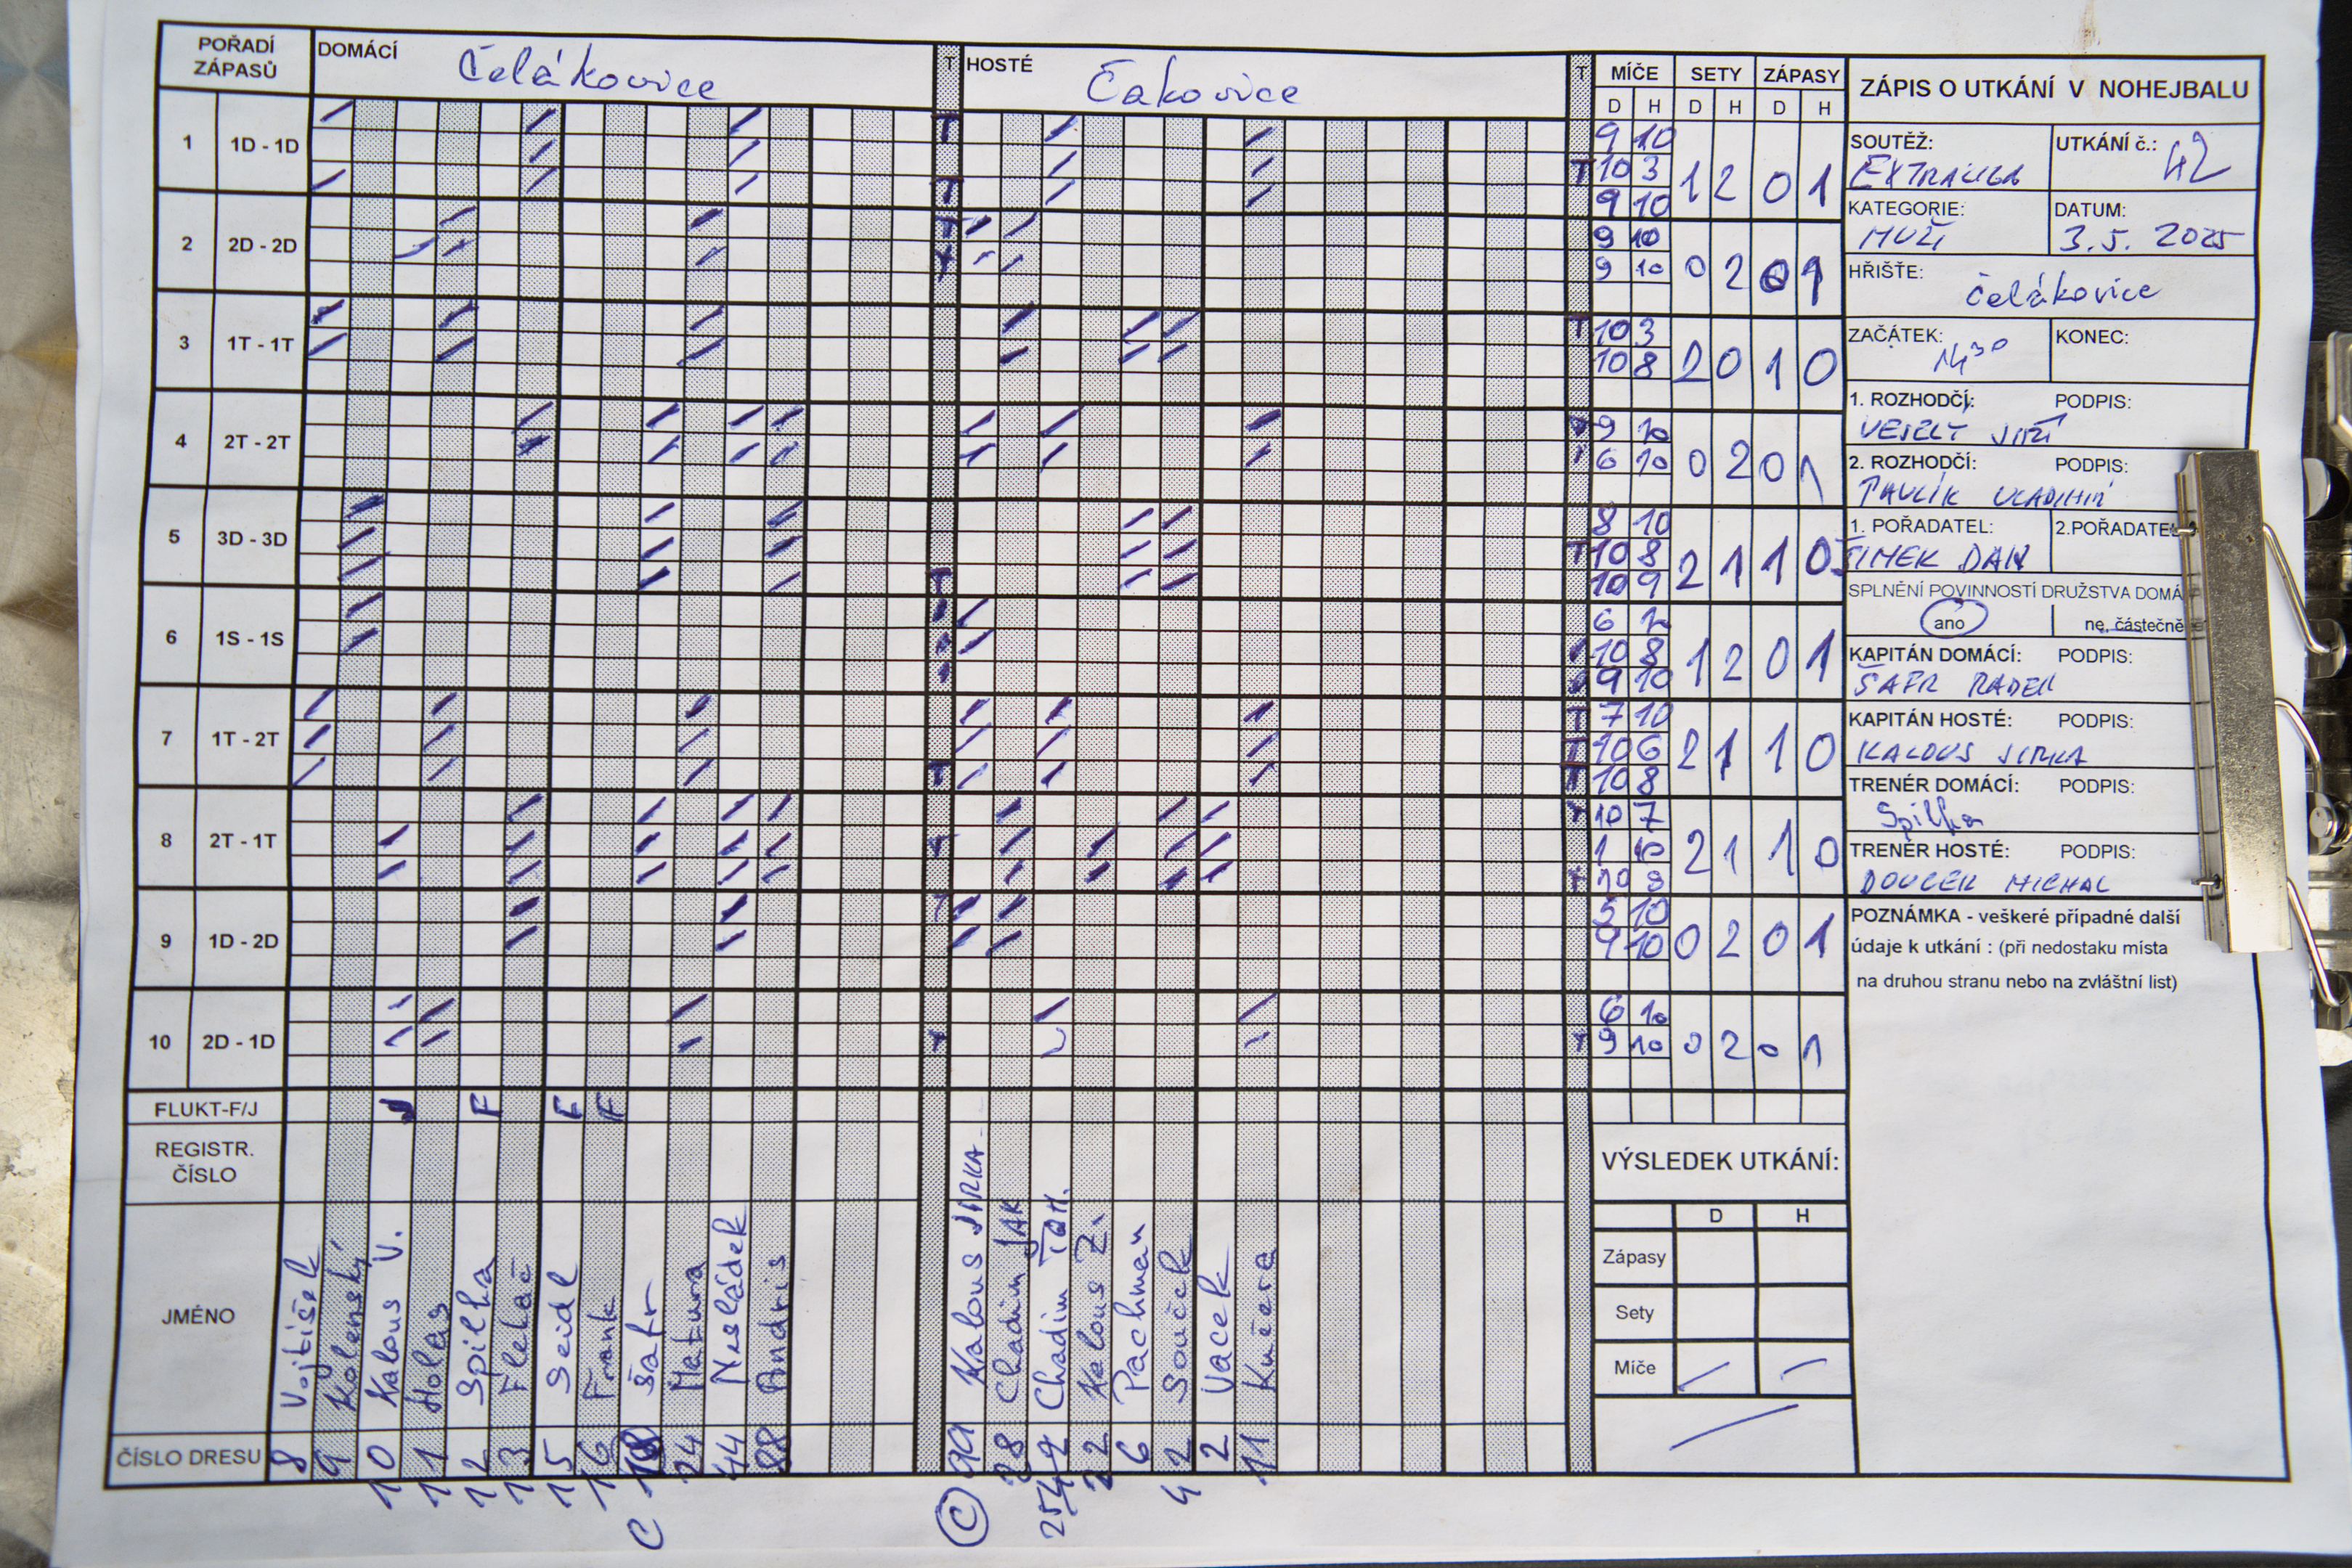 POŘADÍ ZÁPASŮ
DOMÁCÍ Čelákovice
T
HOSTÉ Čakovice
T
MÍČE SETY ZÁPASY
D H D H D H
1 1D - 1D
T T
T
9 10
10 3
9 10
1 2 0 1
2 2D - 2D
T
9 10
9 10
0 2 0 1
3 1T - 1T
T
10 3
10 8
2 0 1 0
4 2T - 2T
T
9 10
6 10
0 2 0 1
5 3D - 3D
T
T
8 10
10 8
10 9
2 1 1 0
6 1S - 1S
10 8
9 10
1 2 0 1
7 1T - 2T
T
T T T
7 10
10 6
10 8
2 1 1 0
8 2T - 1T
T
T T
10 7
1 10
2 1 1 0
9 1D - 2D
T
5 10
9 10
0 2 0 1
10 2D - 1D
T
T
6 10
9 10
0 2 0 1
FLUKT-F/J
J F F F
REGISTR. ČÍSLO
JMÉNO
Vojtíšek
Kolenský
Kalous V.
Holas
Spilka
Flekač
Seidl
Frank
Šafr
Matura
Nesládek
Andris
Kalous JIRKA
Chadim JAK
Chadim TOM.
Kalous Z.
Pachman
Souček
Vacek
Kučera
ČÍSLO DRESU
8 9 10 11 12 13 15 16 18 24 44 88
C
99 28 22 6 42 2 11
C
ZÁPIS O UTKÁNÍ V NOHEJBALU
SOUTĚŽ: EXTRALIGA
UTKÁNÍ č.: 42
KATEGORIE: MUŽI
DATUM: 3.5. 2025
HŘIŠTĚ: Čelákovice
ZAČÁTEK: 14³⁰
KONEC:
1. ROZHODČÍ: PODPIS:
VESELÝ JIŘÍ
2. ROZHODČÍ: PODPIS:
PAVLÍK VLADIMÍR
1. POŘADATEL: 2.POŘADATEL
ŠIMEK DAN
SPLNĚNÍ POVINNOSTÍ DRUŽSTVA DOMÁ
ano ne, částečně
KAPITÁN DOMÁCÍ: PODPIS:
ŠAFR RADEK
KAPITÁN HOSTÉ: PODPIS:
KALOUS JIRKA
TRENÉR DOMÁCÍ: PODPIS:
Spilka
TRENÉR HOSTÉ: PODPIS:
DOUCEK MICHAL
POZNÁMKA - veškeré případné další
údaje k utkání : (při nedostaku místa
na druhou stranu nebo na zvláštní list)
VÝSLEDEK UTKÁNÍ:
D H
Zápasy
Sety
Míče